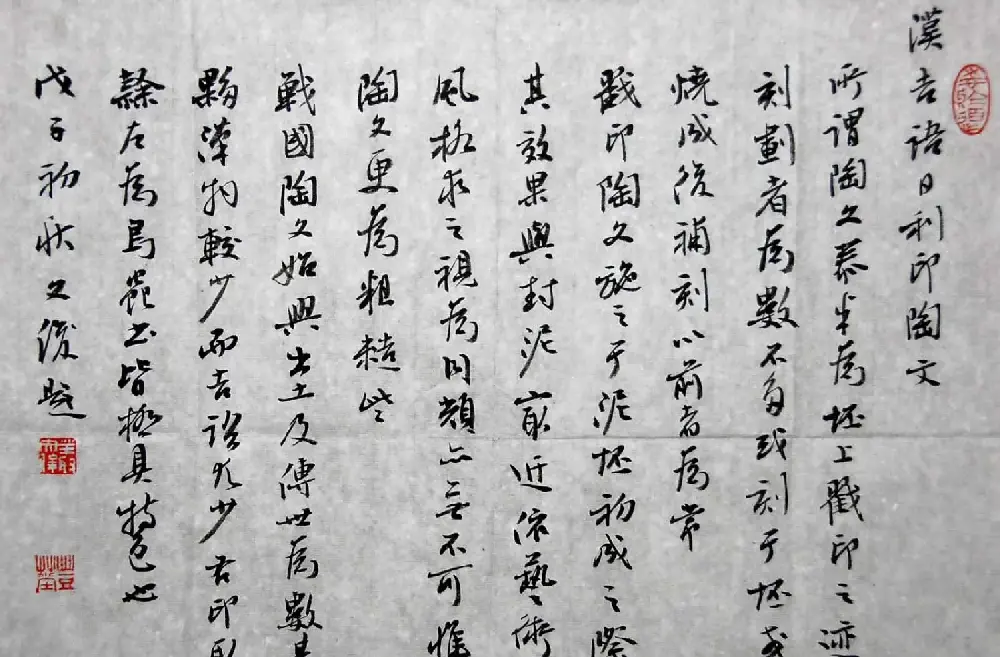 漢吉語日利印陶文
所謂陶文泰半為坯上戳印之迹
刻劃者為數不多或刻于坯或
燒成後補刻以前者為常
戳印陶文施之于泥坯初成之際
其效果與封泥最近依藝術
風格求之視為同類亦無不可惟
陶文更為粗糙些
戰國陶文始興出土及傳世為數甚
夥漢物較少而吉語尤少右印
隸左為鳥蟲書皆極具特色也
戊子初秋文俊題